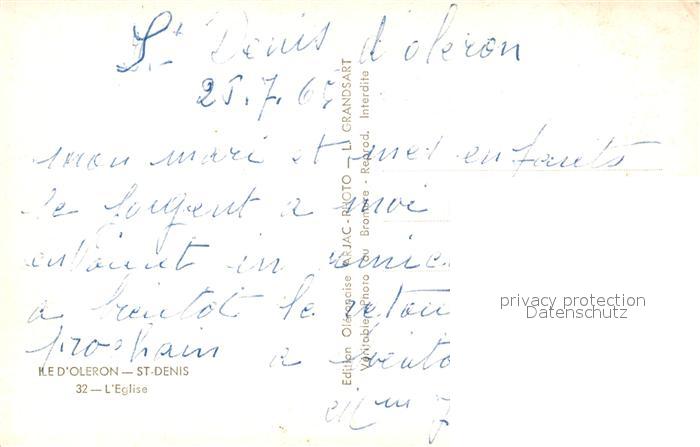 St Denis d'oleron
25.7.65
mon mari et mes enfants
se joigent a moi
en
a bientot le retou
prochain a biento
Mme
ILE D'OLERON — ST-DENIS
32 — L'Eglise
Edition Oléronaise ARJAC-PHOTO — LE GRANDSART
Véritable Photo au Bromure - Reprod. Interdite
privacy protection
Datenschutz